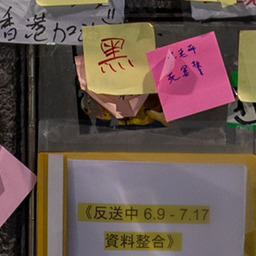 香港加油
黑
《反送中 6.9 - 7.17
資料整合》